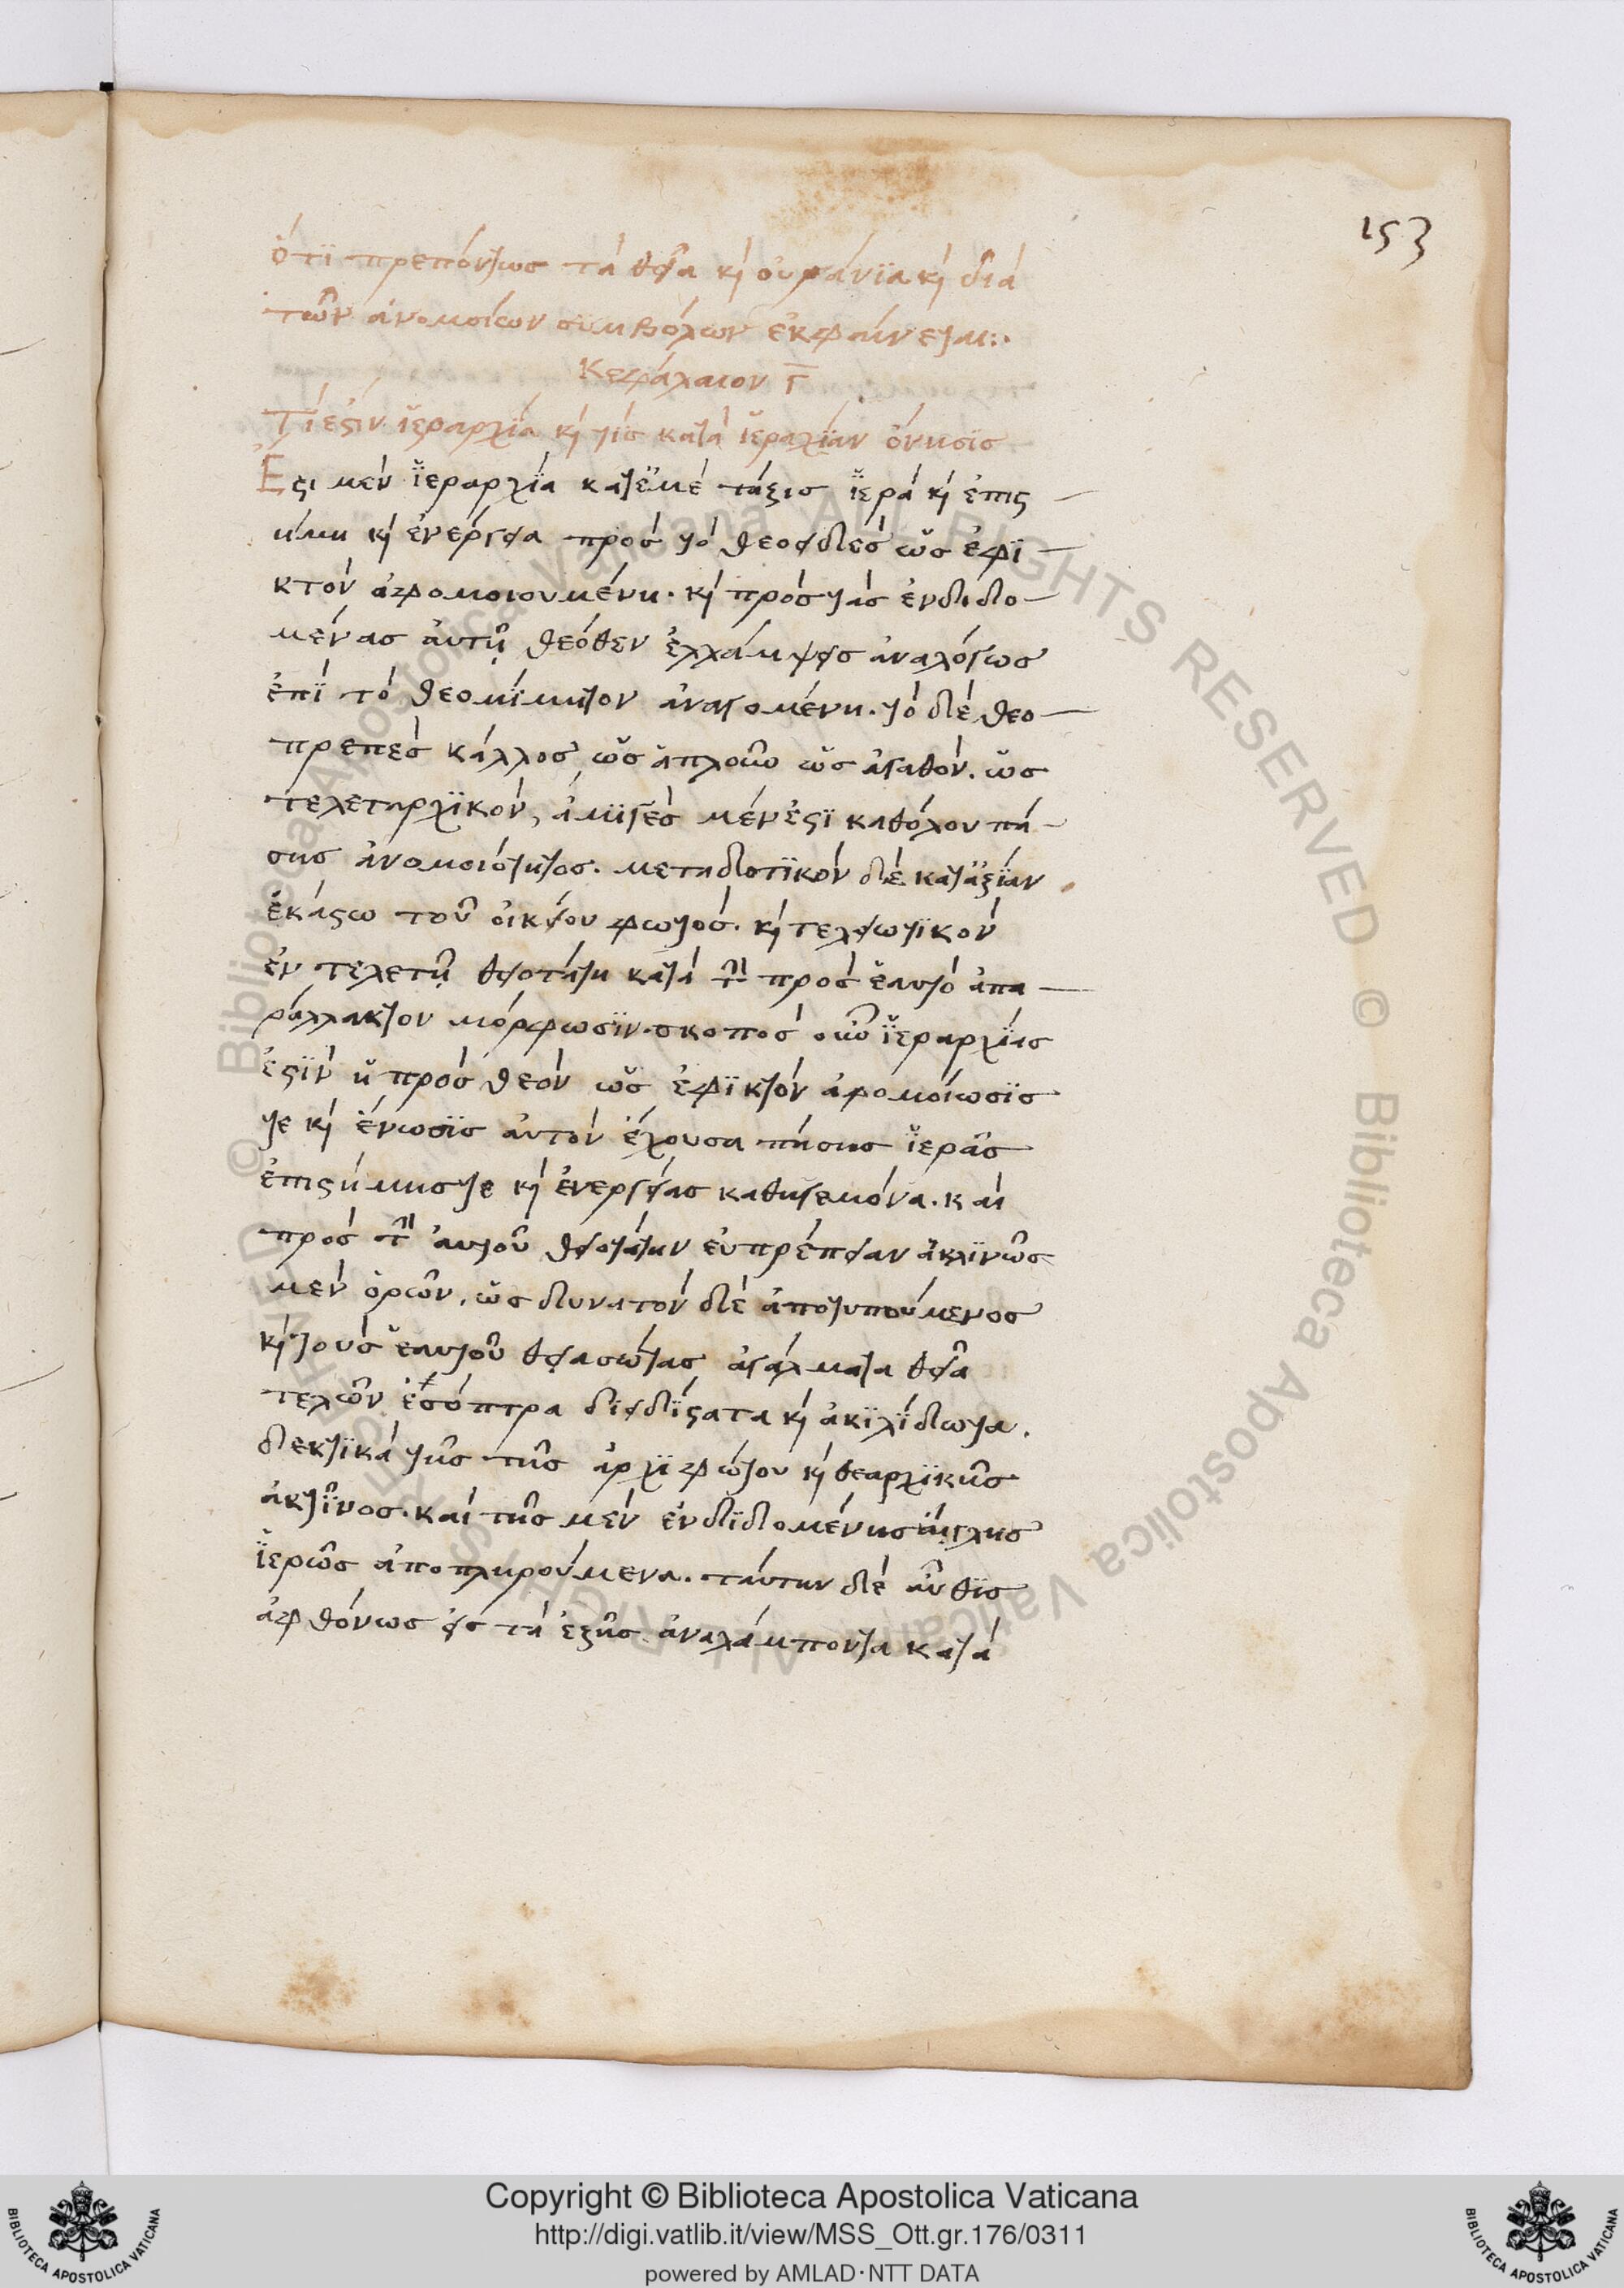 153
ὅτι πρεπόντως τὰ θεῖα κ οὐράνια κ διὰ
τῶν ἀνομοίων συμβόλων ἐκφαίνεται:.
Κεφάλαιον Γ
Τί ἐστιν ἱεραρχία κ τίς κατὰ ἱεραχίαν ὄνησις
Ἔστι μὲν ἱεραρχία κατ' ἐμὲ τάξις ἱερὰ κ ἐπιστ
ήμη κ ἐνέργεια πρὸς τὸ θεοειδὲς ὡς ἐφι
κτὸν ἀφομοιουμένη. κ πρὸς τὰς ἐνδιδο
μένας αὐτῇ θεόθεν ἐλλάμψεις ἀναλόγως
ἐπὶ τὸ θεομίμητον ἀναγομένη. τὸ δὲ θεο
πρεπὲς κάλλος ὡς ἁπλοῦν ὡς ἀγαθὸν. ὡς
τελεταρχικὸν, ἀμιγὲς μὲν ἐστὶ καθόλου πά
σης ἀνομοιότητος. μεταδοτικὸν δὲ κατ' ἀξίαν
ἑκάστω τοῦ οἰκείου φωτὸς. κ τελειωτικὸν
ἐν τελετῇ θειοτάτη κατὰ τὴν πρὸς ἑαυτὸ ἀπα
ράλλακτον μόρφωσιν. σκοπὸς οὖν ἱεραρχίας
ἐστὶν ἡ πρὸς θεὸν ὡς ἐφικτὸν ἀφομοίωσις
τε κ ἕνωσις αὐτὸν ἔχουσα πάσης ἱερᾶς
ἐπιστήμης τε κ ἐνεργείας καθηγεμόνα. καὶ
πρὸς τὴν αὐτοῦ θειοτάτην εὐπρέπειαν ἀκλινῶς
μὲν ὁρῶν, ὡς δυνατὸν δὲ ἀποτυπούμενος
κ τοὺς ἑαυτοῦ θειασώτας ἀγάλματα θεῖα
τελῶν ἔσοπτρα διειδέστατα κ ἀκιλίδωτα.
δεκτικὰ τῆς τῆς ἀρχιφώτου κ θεαρχικῆς
ἀκτῖνος. καὶ τῆς μὲν ἐνδιδομένης αἴγλης
ἱερῶς ἀποπληρούμενα. ταύτην δὲ αὖθις
ἀφθόνως εἰς τὰ ἑξῆς ἀναλάμποντα κατὰ
Copyright © Biblioteca Apostolica Vaticana
http://digi.vatlib.it/view/MSS_Ott.gr.176/0311
powered by AMLAD·NTT DATA
BIBLIOTECA APOSTOLICA VATICANA
BIBLIOTECA APOSTOLICA VATICANA